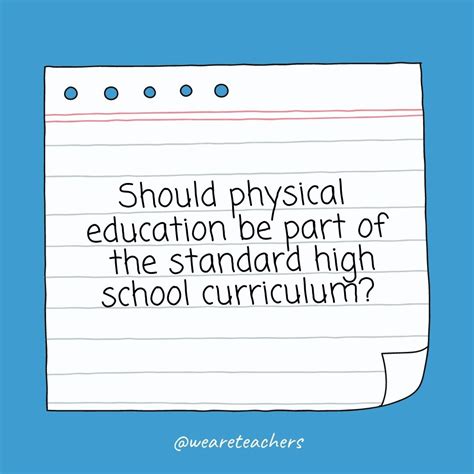 Should physical
education be part of
the standard high
school curriculum?
@weareteachers